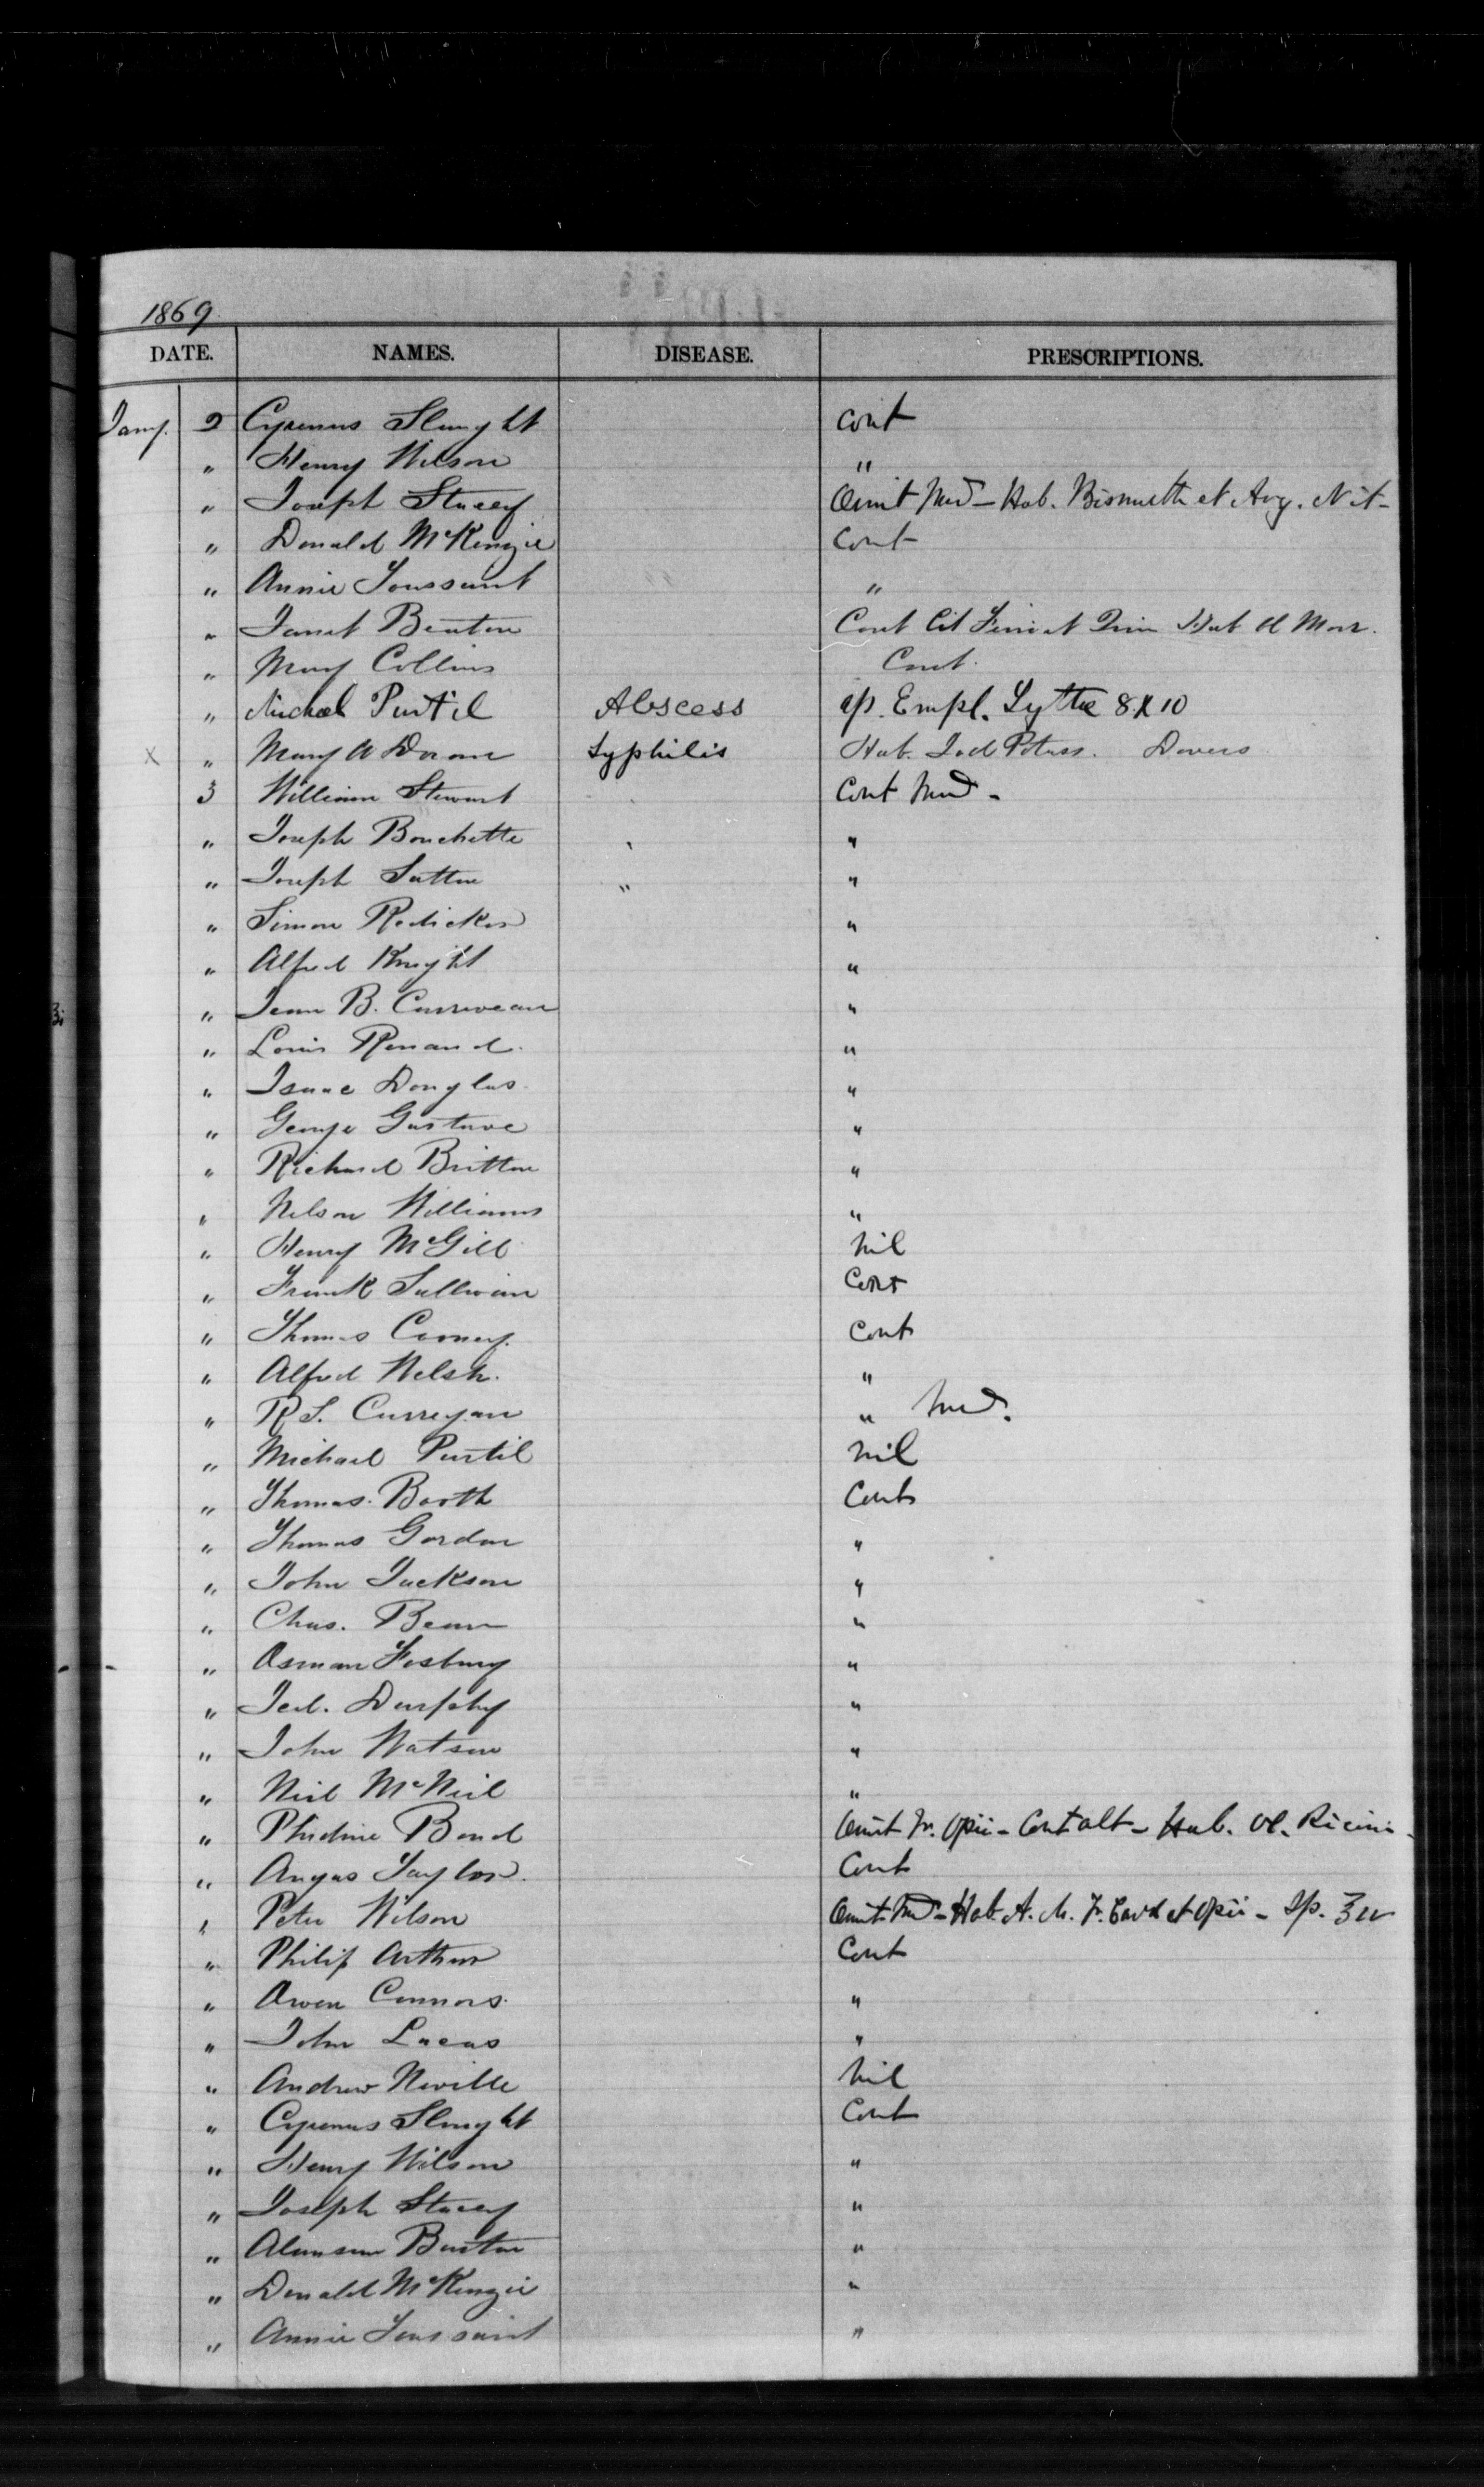 1869
DATE. NAMES. DISEASE. PRESCRIPTIONS.
Jany. 2 Cyrenus Slaught Cont
" Henry Wilson "
" Joseph Stacey Omit Med - Hab. Bismuth et Arg. Nit-
" Donald McKenzie Cont
" Annie Toussaint "
" Janet Benton Cont Cit Ferri et Quin Hab Morr.
" Mary Collins Cont.
" Michael Purtil Abscess Empl. Lyttae 8 x 10
x " Mary A Doran Syphilis Hab. Iod Potass. Dovers
3 William Stewart Cont Med -
" Joseph Bouchette "
" Joseph Sutton " "
" Simon Redicker "
" Alfred Knight "
" Jean B. Curriveau "
" Louis Renaud. "
" Isaac Douglas. "
" George Gustave "
" Richard Britton "
" Nelson Williams "
" Henry McGill Nil
" Frank Sullivan Cont
" Thomas Carney. Cont
" Alfred Welsh. "
" R S. Curregan " Med.
" Michael Purtil Nil
" Thomas. Booth Cont
" Thomas Gordon "
" John Jackson "
" Chas. Bean "
" Osman Fosbury "
" Jed. Durphy "
" John Watson "
" Neil McNeil "
" Phidime Bond Omit Tr. Opii - Cont alt - Hab. Ol. Ricini -
" Angus Taylor. Cont
" Peter Wilson Omit Med - Hab. A. M. Tr. Card et Opii -
" Philip Arthur Cont
" Owen Connors. "
" John Lucas "
" Andrew Neville Nil
" Cyrenus Slaught Cont
" Henry Wilson "
" Joseph Stacey "
" Alanson Burton "
" Donald McKenzie "
" Annie Toussaint "